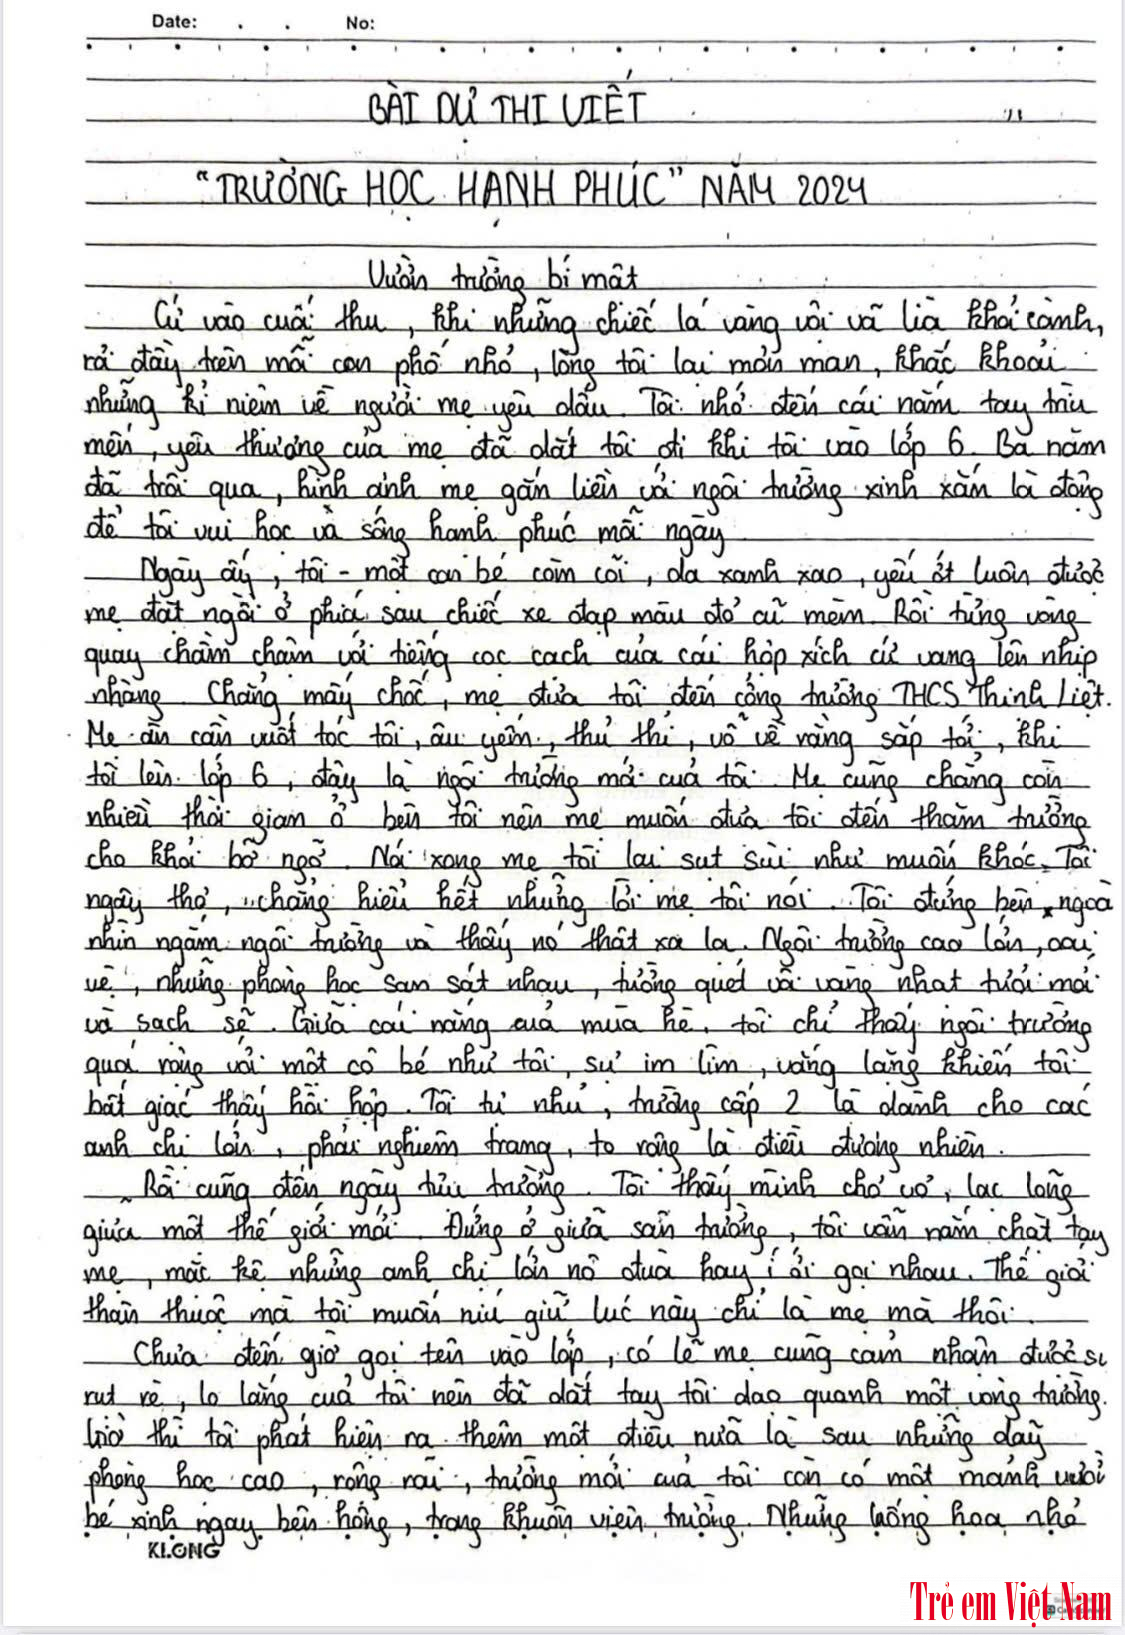 Date: . . No:
BÀI DỰ THI VIẾT
“TRƯỜNG HỌC HẠNH PHÚC” NĂM 2024
Vườn trường bí mật
Cứ vào cuối thu, khi những chiếc lá vàng vội vã lìa khỏi cành,
rải đầy trên mỗi con phố nhỏ, lòng tôi lại mơn man, khắc khoải
những kỉ niệm về người mẹ yêu dấu. Tôi nhớ đến cái nắm tay trìu
mến, yêu thương của mẹ đã dắt tôi đi khi tôi vào lớp 6. Ba năm
đã trôi qua, hình ảnh mẹ gắn liền với ngôi trường xinh xắn là động
để tôi vui học và sống hạnh phúc mỗi ngày
Ngày ấy, tôi - một con bé còm cõi, da xanh xao, yếu ớt luôn được
mẹ đặt ngồi ở phía sau chiếc xe đạp màu đỏ cũ mèm. Rồi từng vòng
quay chầm chậm với tiếng cọc cạch của cái hộp xích cứ vang lên nhịp
nhàng. Chẳng mấy chốc, mẹ đưa tôi đến cổng trường THCS Thịnh Liệt.
Mẹ ân cần vuốt tóc tôi, âu yếm, thủ thỉ, vỗ về rằng sắp tới, khi
tôi lên lớp 6, đây là ngôi trường mới của tôi. Mẹ cũng chẳng còn
nhiều thời gian ở bên tôi nên mẹ muốn đưa tôi đến thăm trường
cho khỏi bỡ ngỡ. Nói xong mẹ tôi lại sụt sùi như muốn khóc. Tôi
ngây thơ, chẳng hiểu hết những lời mẹ tôi nói. Tôi đứng bên ngoà
nhìn ngắm ngôi trường và thấy nó thật xa lạ. Ngôi trường cao lớn, oai
vệ, những phòng học san sát nhau, tường quét vôi vàng nhạt tươi mới
và sạch sẽ. Giữa cái nắng của mùa hè, tôi chỉ thấy ngôi trường
quá rộng với một cô bé như tôi, sự im lìm, vắng lặng khiến tôi
bất giác thấy hồi hộp. Tôi tự nhủ, trường cấp 2 là dành cho các
anh chị lớn, phải nghiêm trang, to rộng là điều đương nhiên.
Rồi cũng đến ngày tựu trường. Tôi thấy mình chơ vơ, lạc lõng
giữa một thế giới mới. Đứng ở giữa sân trường, tôi vẫn nắm chặt tay
mẹ, mặc kệ những anh chị lớn nô đùa hay í ới gọi nhau. Thế giới
thân thuộc mà tôi muốn níu giữ lúc này chỉ là mẹ mà thôi.
Chưa đến giờ gọi tên vào lớp, có lẽ mẹ cũng cảm nhận được sự
rụt rè, lo lắng của tôi nên đã dắt tay tôi dạo quanh một vòng trường.
Giờ thì tôi phát hiện ra thêm một điều nữa là sau những dãy
phòng học cao, rộng rãi, trường mới của tôi còn có một mảnh vườn
bé xinh ngay bên hông, trong khuôn viên trường. Những luống hoa nhỏ
KLONG
Trẻ em Việt Nam